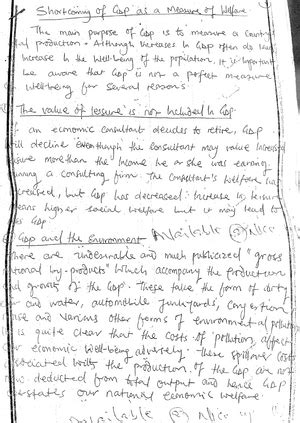 Shortcoming of GDP as a Measure of Welfare
The main purpose of GDP is to measure a Country
production. Although increases in GDP often do
increase in the well-being of the population. It is important
be aware that GDP is not a perfect measure
well-being for several reasons
The value of leisure is not Included in GDP
If an economic consultant decides to retire, GDP
will decline even though the consultant may value increased
leisure more than the income he or she was earning
running a consulting firm. The consultant's welfare has
increased, but GDP has decreased. Increase in leisure
means higher social welfare but it may lead to
GDP
GDP and the Environment Available @ Alice
There are undesirable and much publicized "gross
national by-products" which accompany the production
and growth of the GDP. These take the form of dirty
air and water, automobile junkyards, congestion
noise and various other forms of environmental pollution
is quite clear that the costs of pollution affect
economic well-being adversely. These spillover costs
associated with the production of the GDP are not
now deducted from total output and hence GDP
overstates our national economic welfare
Available @ Alice